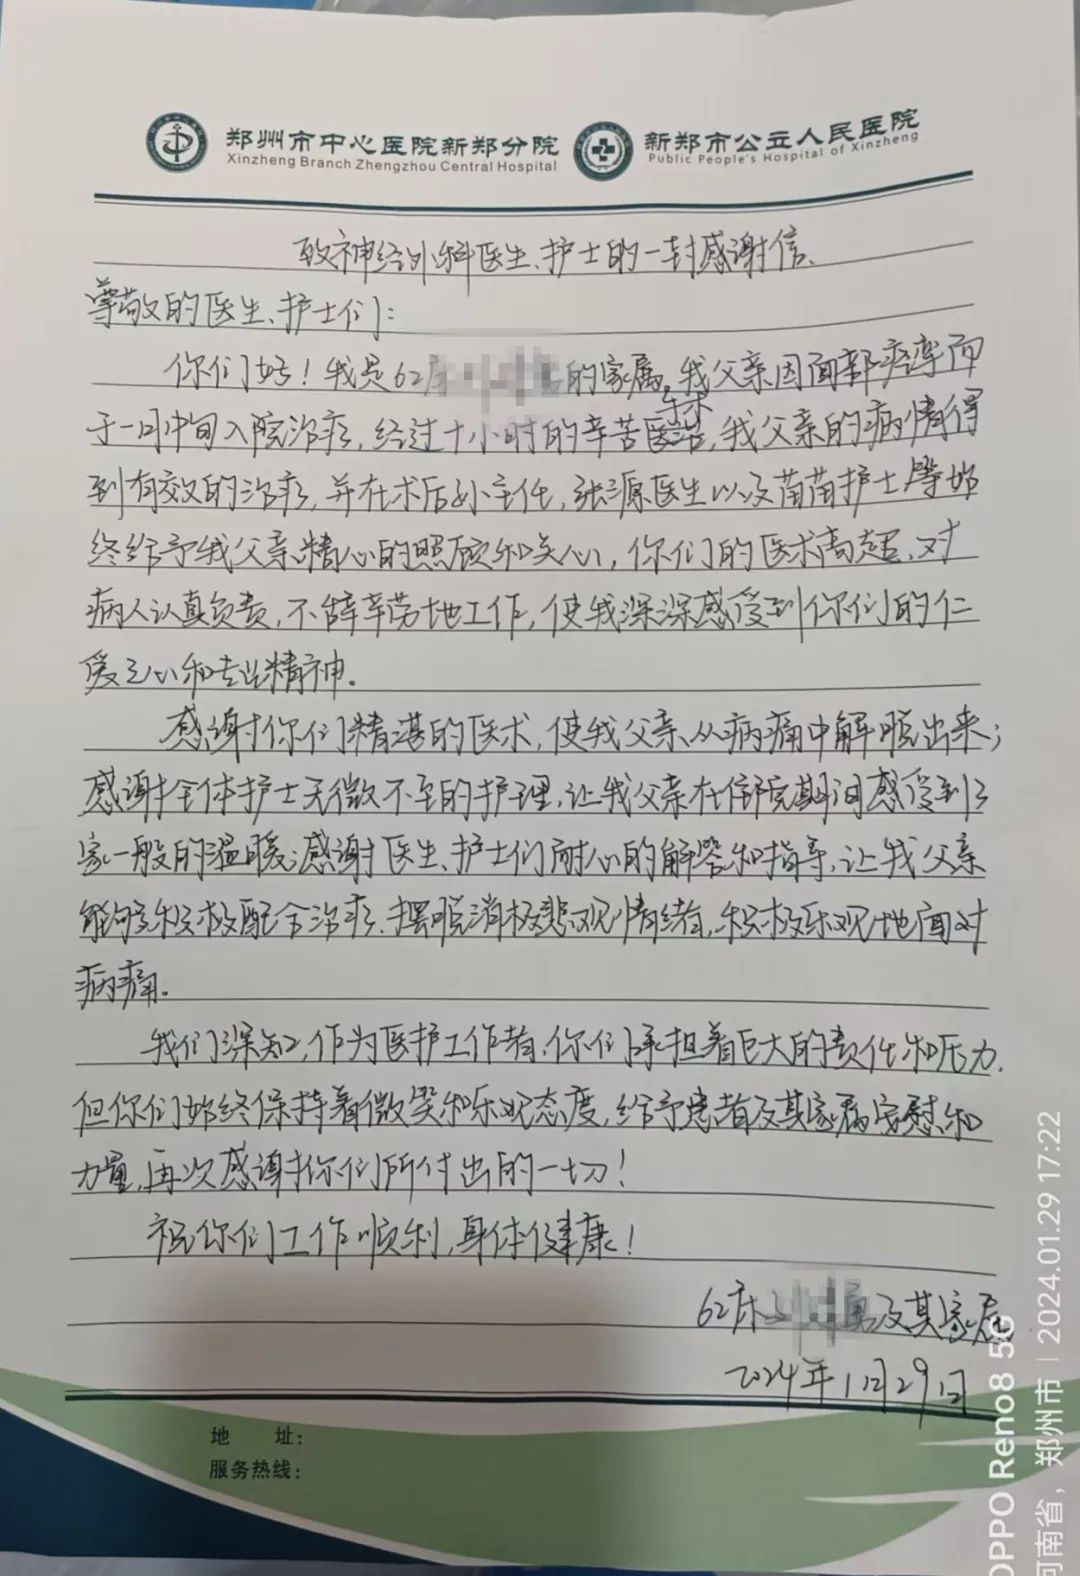 郑州市中心医院新郑分院 新郑市公立人民医院
Xinzheng Branch Zhengzhou Central Hospital Public People's Hospital of Xinzheng
致神经外科医生、护士的一封感谢信、
尊敬的医生、护士们:
你们好!我是62床的家属,我父亲因面部痉挛而
于一月中旬入院治疗,经过十小时的辛苦医治,我父亲的病情得
手术
到有效的治疗,并在术后孙主任,张源医生以及苗苗护士等始
终给予我父亲精心的照顾和关心,你们的医术高超、对
病人认真负责,不辞辛劳地工作,使我深深感受到你们的仁
爱之心和专业精神。
感谢你们精湛的医术,使我父亲从病痛中解脱出来;
感谢全体护士无微不至的护理,让我父亲在住院期间感受到了
家一般的温暖;感谢医生、护士们耐心的解答和指导,让我父亲
能够积极配合治疗、摆脱消极悲观情绪,积极乐观地面对
病痛。
我们深知,作为医护工作者,你们承担着巨大的责任和压力,
但你们始终保持着微笑和乐观态度,给予患者及其家属安慰和
力量,再次感谢你们所付出的一切!
祝你们工作顺利,身体健康!
62床 勇及其家属
2024年1月29日
地 址:
服务热线:
OPPO Reno8 5G
河南省,郑州市 | 2024.01.29 17:22